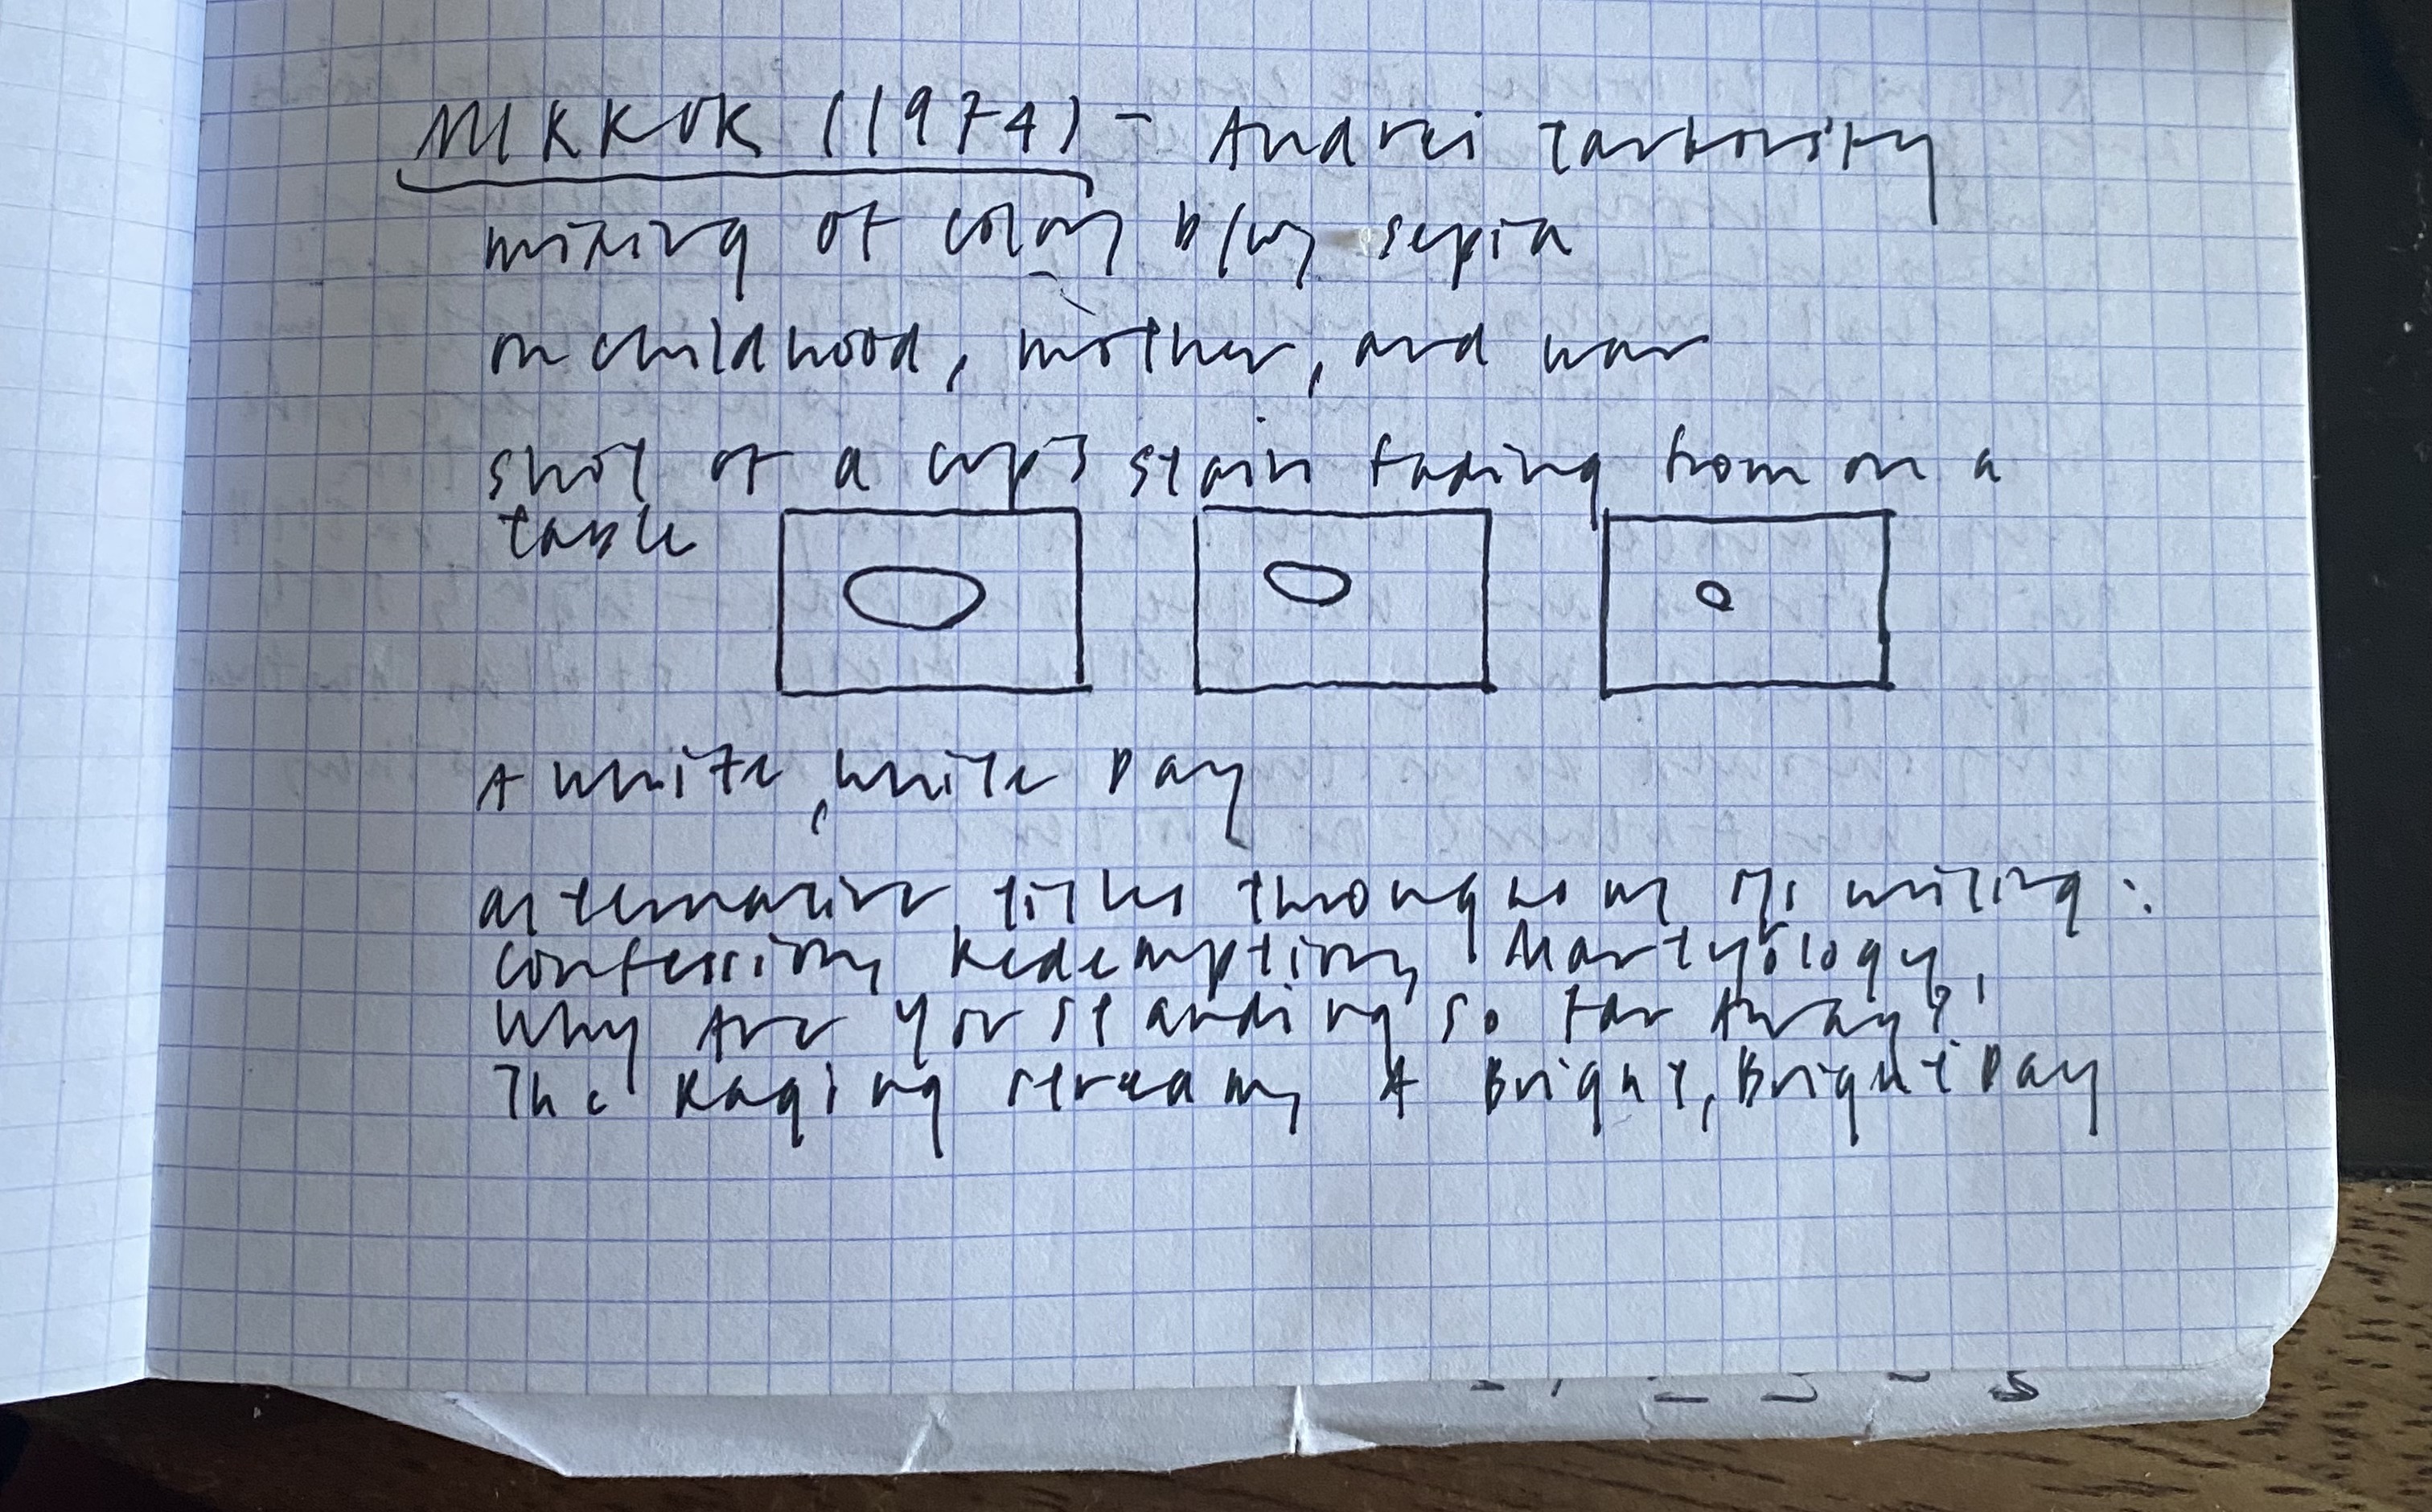 MIRROR (1974) - Andrei Tarkovsky
mixing of color, b/w, sepia
on childhood, mother, and war
shot of a cup's stain fading from on a
table
A White, White Day
alternative titles throughout its writing:
Confession, Redemption, Martyrology,
Why Are You Standing So Far Away?,
The Raging Stream, A Bright, Bright Day